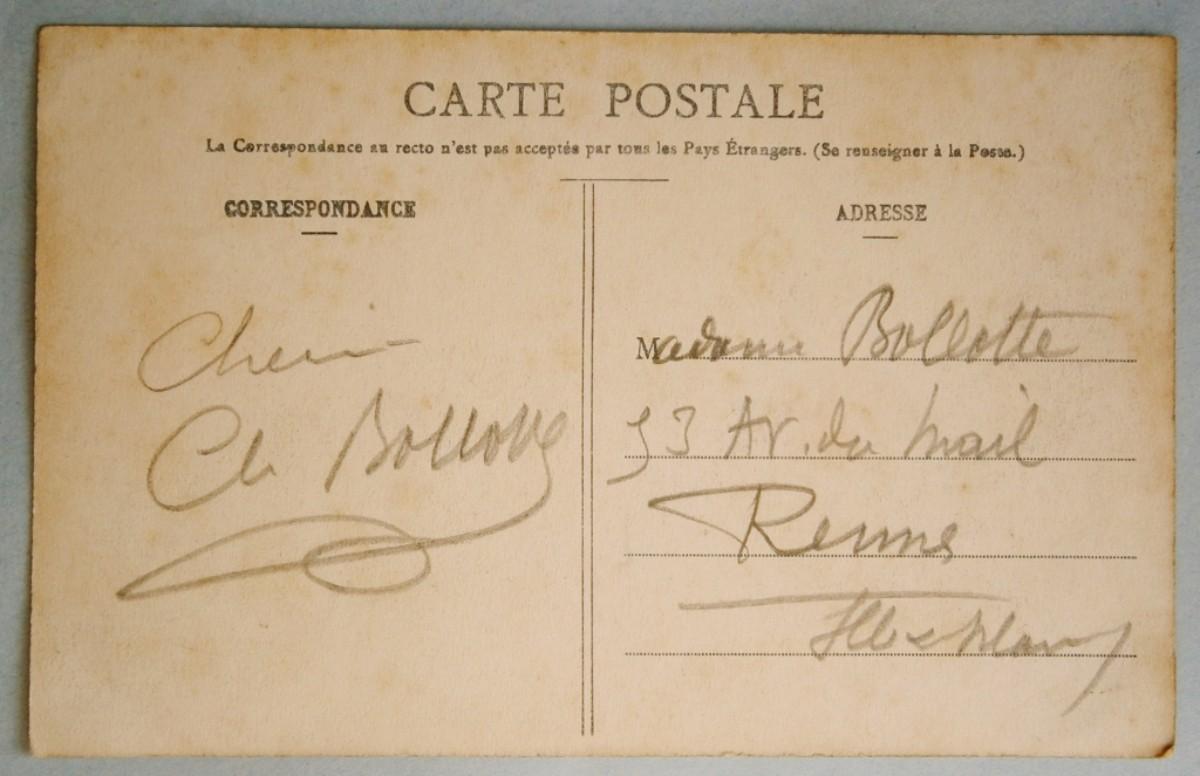 CARTE POSTALE
La Correspondance au recto n'est pas acceptée par tous les Pays Étrangers. (Se renseigner à la Poste.)
CORRESPONDANCE
Ch Bollotte
ADRESSE
Madame Bollotte
53 Av. du Mail
Rennes